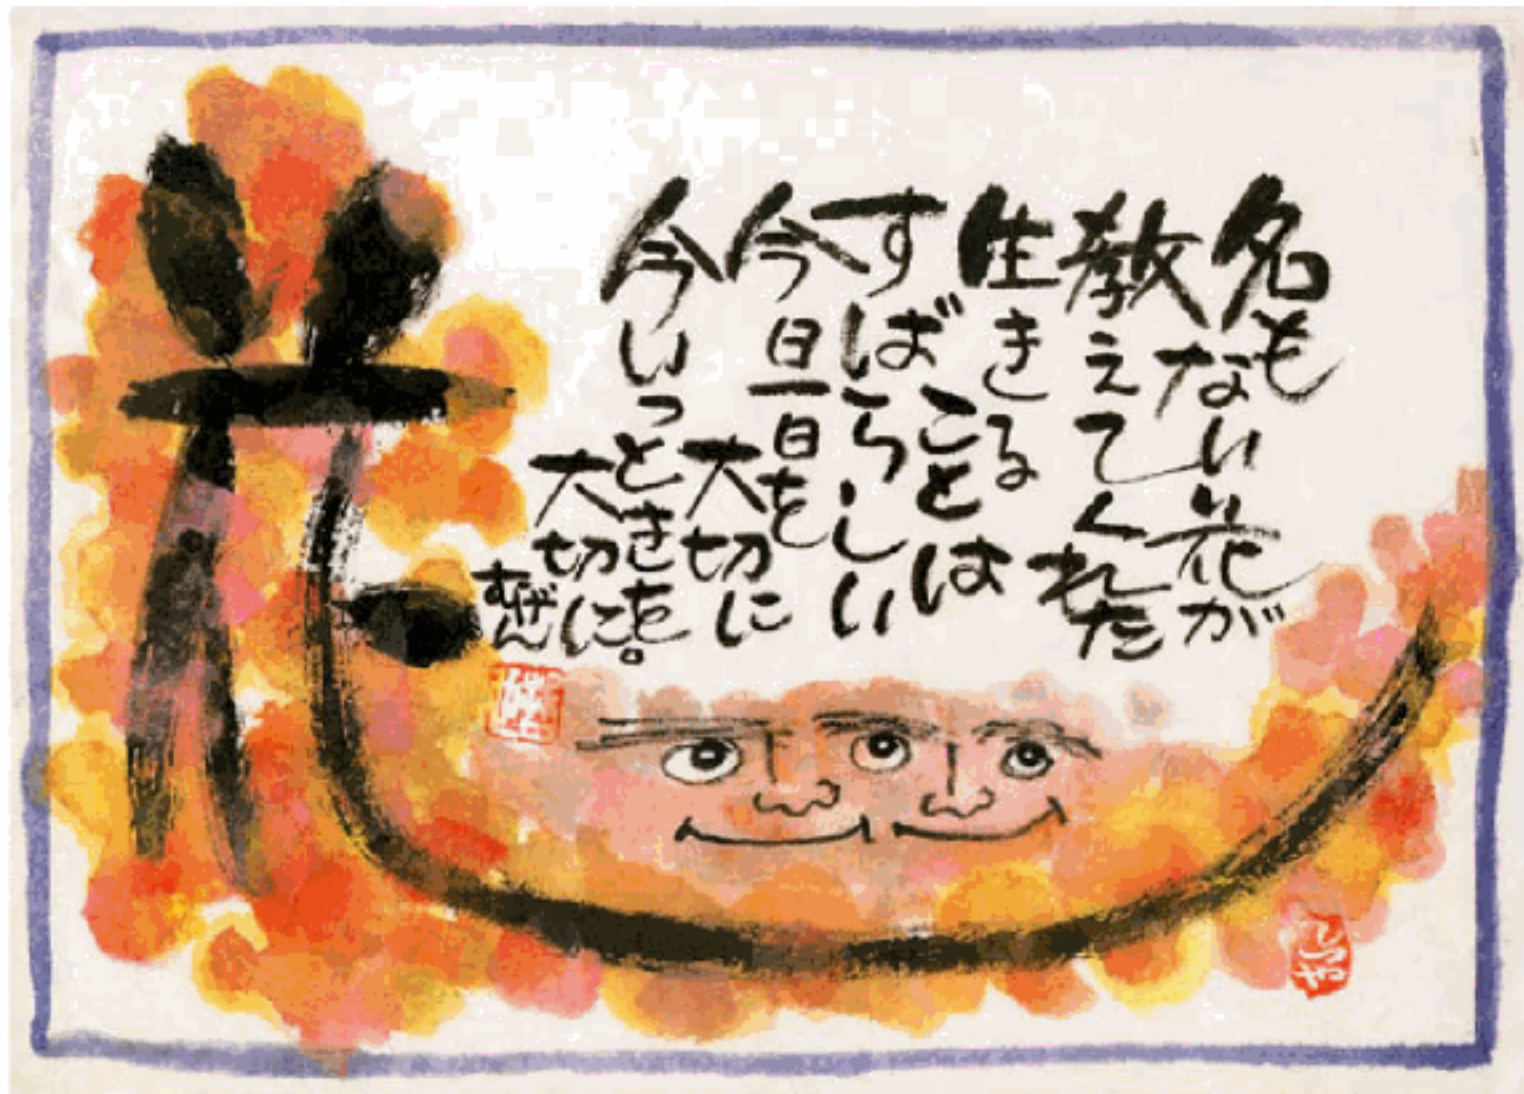 花
名もない花が
教えてくれた
生きることは
すばらしい
今日一日を
大切に
今いっときを
大切に。
むげん